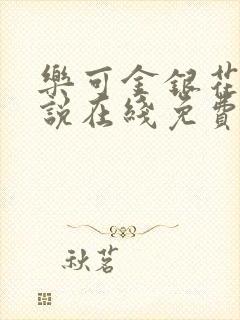 樂可金銀花
說在綫免費
秋茗